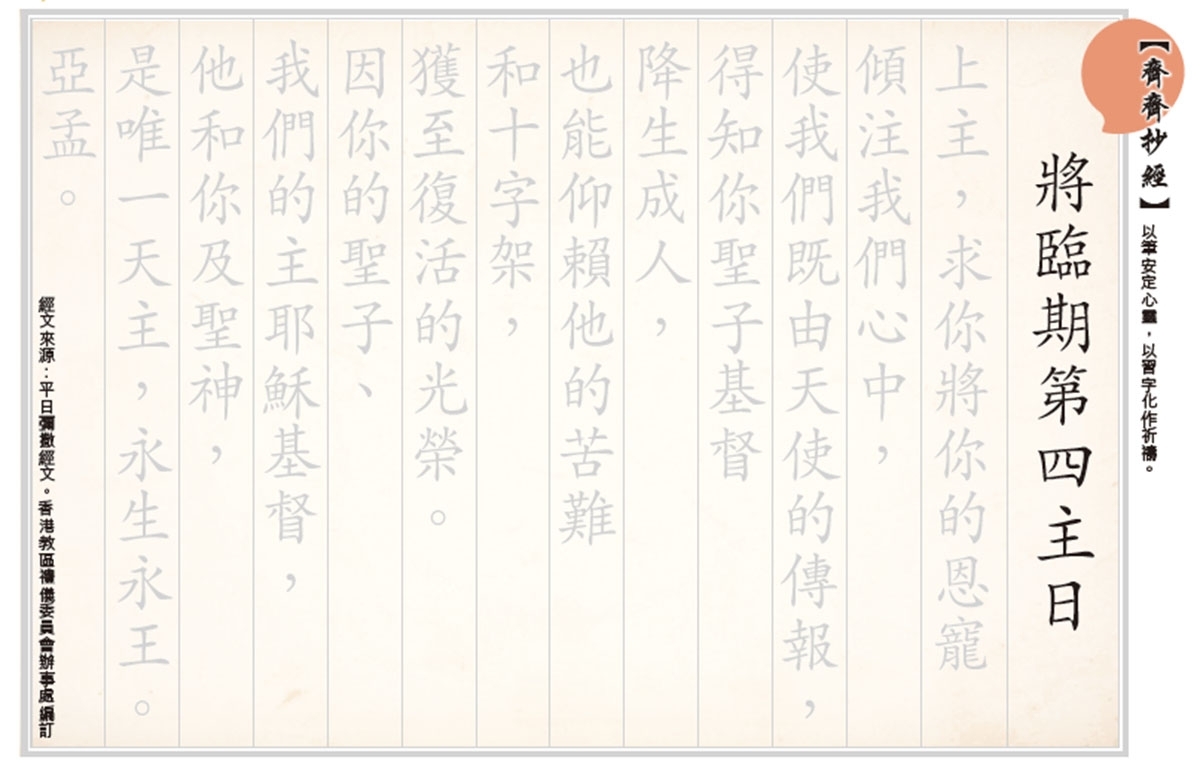 【齊齊抄經】以筆安定心靈，以習字化作祈禱。
將臨期第四主日
上主，求你將你的恩寵
傾注我們心中，
使我們既由天使的傳報，
得知你聖子基督
降生成人，
也能仰賴他的苦難
和十字架，
獲至復活的光榮。
因你的聖子、
我們的主耶穌基督，
他和你及聖神，
是唯一天主，永生永王。
亞孟。
經文來源：平日彌撒經文。香港教區禮儀委員會辦事處編訂